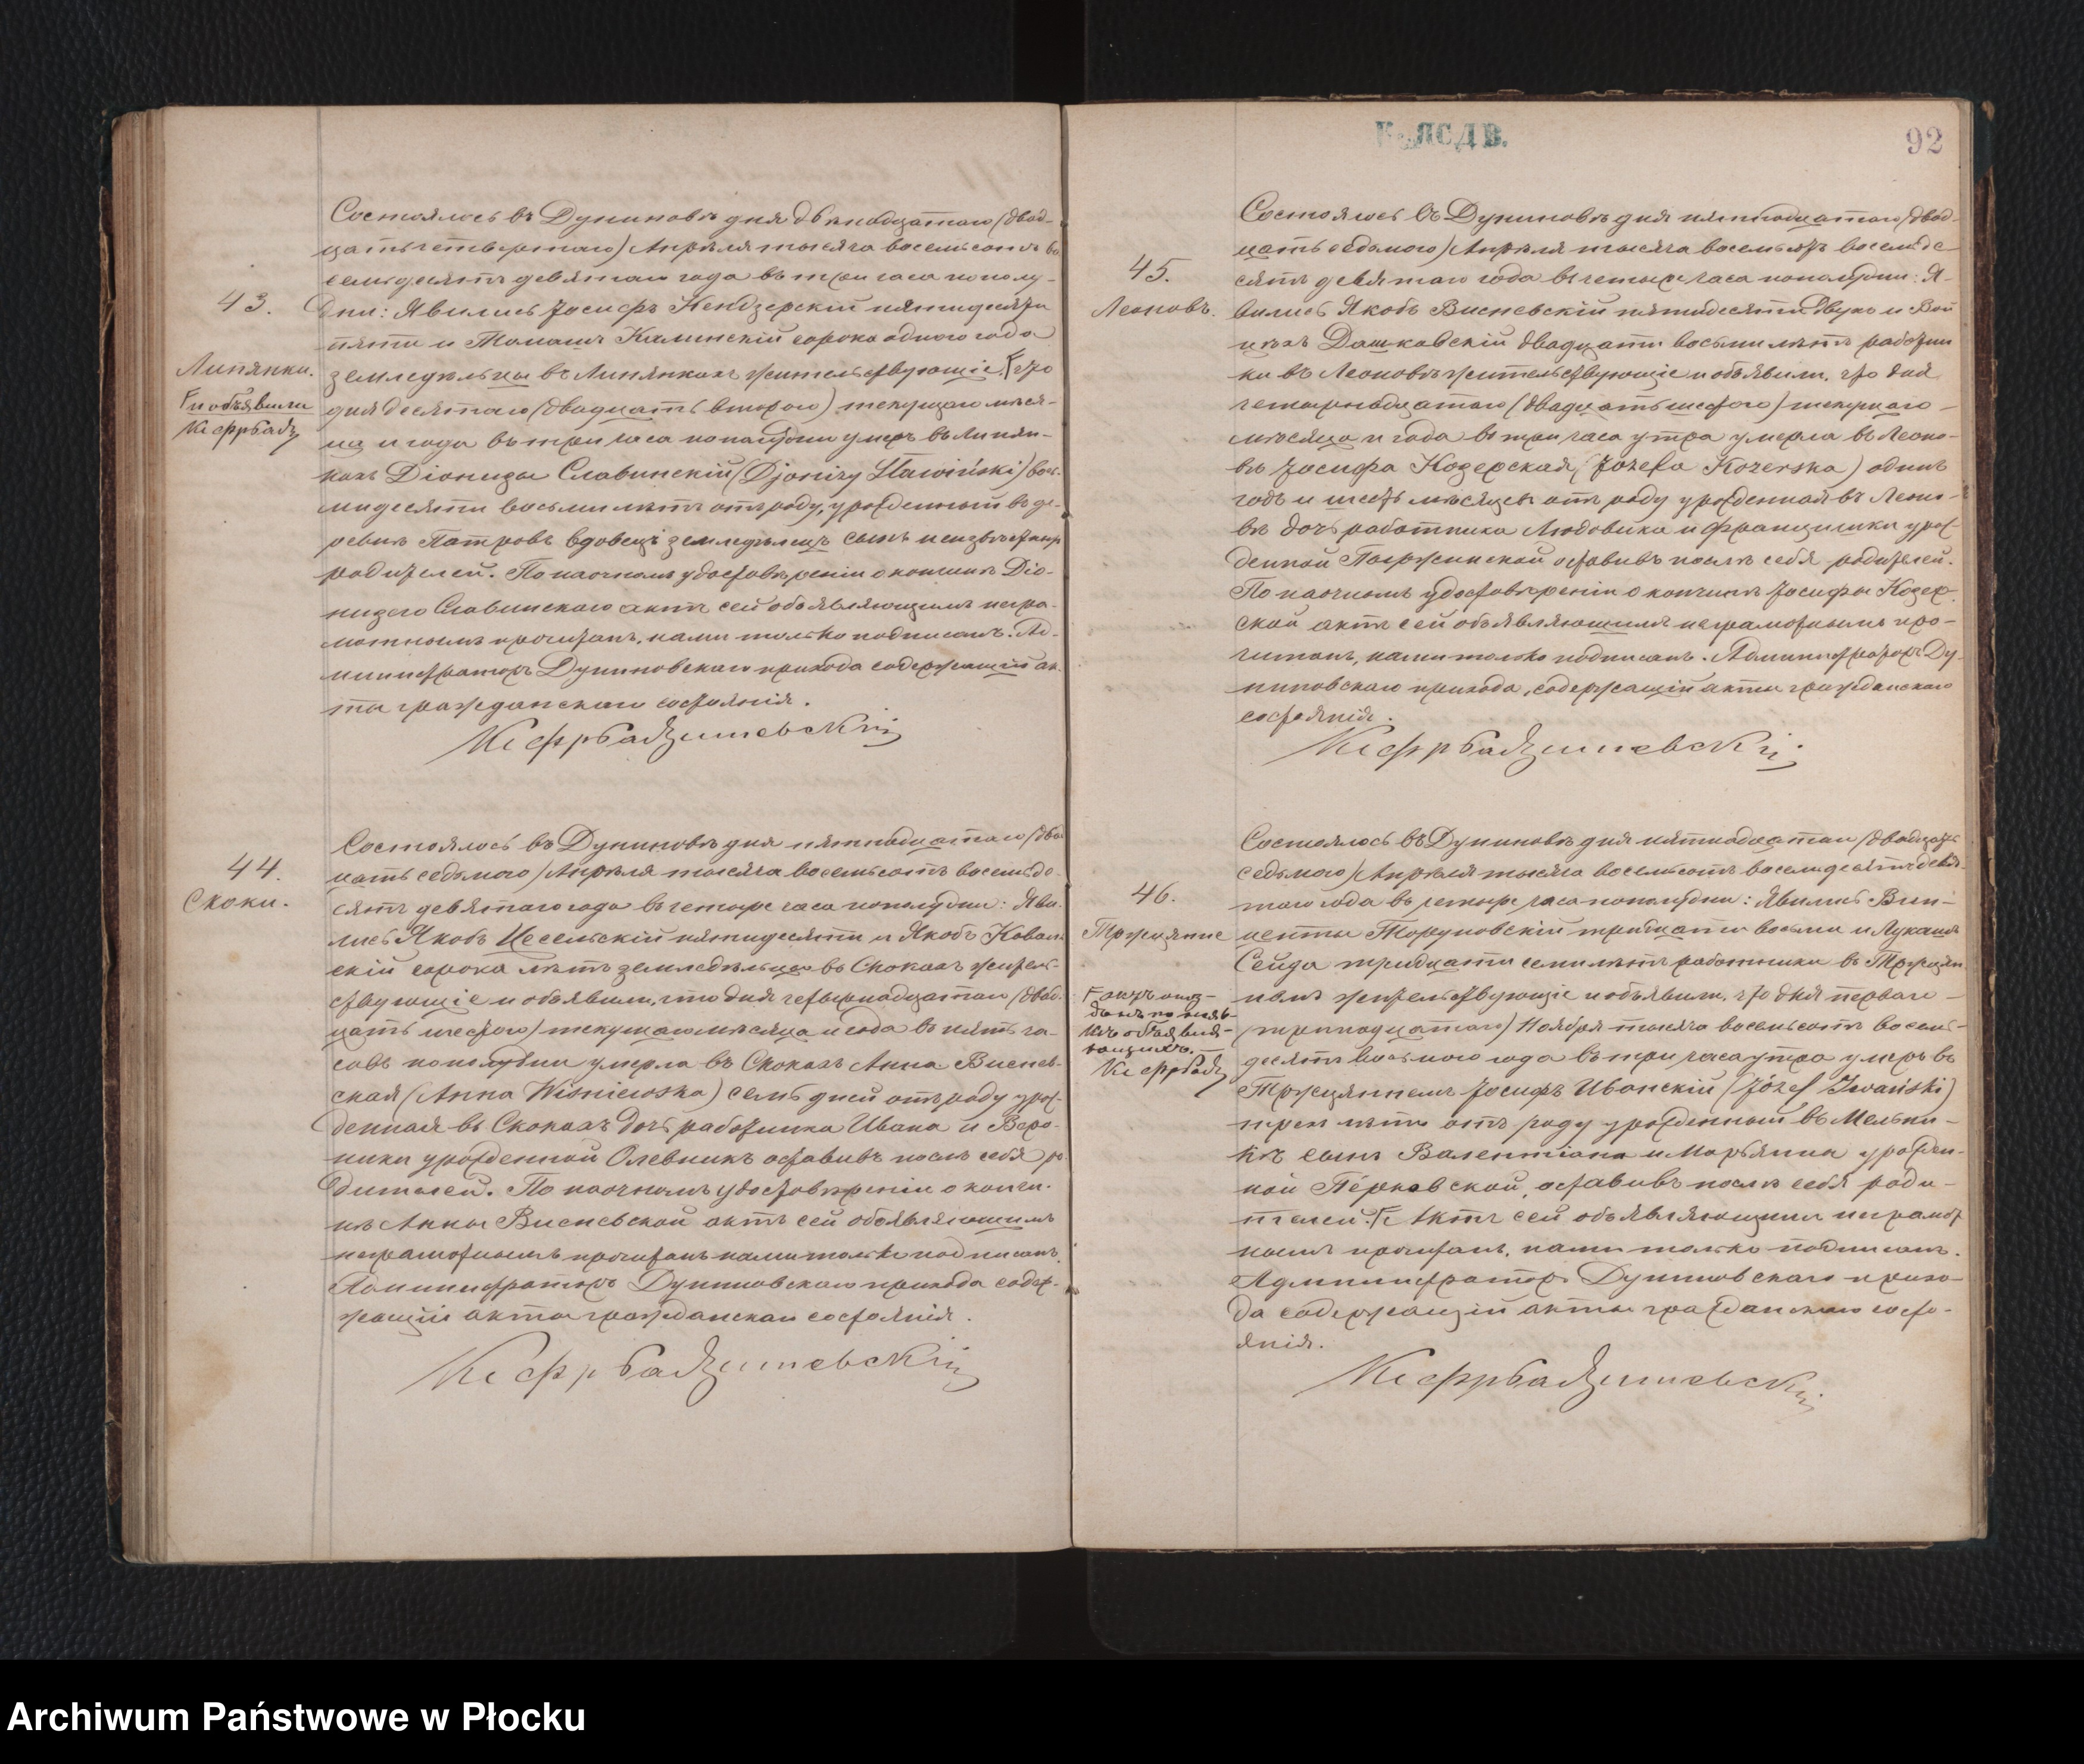 43.
Липянки.
и объявили
Состоялось въ Дуниновѣ дня двѣнадцатаго (двад-
цать четвертаго) Апрѣля тысяча восемьсотъ во
семьдесятъ девятаго года въ три часа пополу-
дни: Явились Іосифъ Нендзерскій пятидесяти
пяти и Томашъ Калинскій сорока одного года
земледѣльцы въ Липянкахъ жительствующіе, что
дня десятаго (двадцать втораго) текущаго мѣся-
ца и года въ три часа пополудни умеръ въ Липян-
кахъ Діонизы Славинскій (Djonizy Sławiński) вось-
мидесяти восьми лѣтъ отъ роду, урожденный въ де-
ревнѣ Патровѣ вдовецъ земледѣлецъ сынъ неизвѣстныхъ
родителей. По наочномъ удостовѣреніи о кончинѣ Діо-
низаго Славинскаго актъ сей объявляющимъ негра-
мотнымъ прочитанъ, нами только подписанъ. Ад-
министраторъ Дуниновскаго прихода содержащій ак-
ты гражданскаго состоянія.
44.
Скоки.
Состоялось въ Дуниновѣ дня пятнадцатаго (двад
цать седьмаго) Апрѣля тысяча восемьсотъ восемьде-
сятъ девятаго года въ четыре часа пополудни: Яви-
лись Якобъ Цесельскій пятидесяти и Якобъ Коваль
скій сорока лѣтъ земледѣльцы въ Скокахъ житель-
ствующіе и объявили, что дня четырнадцатаго (двад-
цать шестаго) текущаго мѣсяца и года въ пять ча-
совъ пополудни умерла въ Скокахъ Анна Виснев-
ская (Anna Wisniewska) семь дней отъ роду уро-
жденная въ Скокахъ дочь работника Ивана и Веро-
ники урожденной Олевникъ оставивъ послѣ себя ро
дителей. По наочномъ удостовѣреніи о кончи-
нѣ Анны Висневской актъ сей объявляющимъ
неграмотнымъ прочитанъ нами только подписанъ.
Администраторъ Дуниновскаго прихода содер-
жащій акты гражданскаго состоянія.
К. ЛСДВ.
92
45.
Леоновъ.
Состоялось въ Дуниновѣ дня пятнадцатаго (двад-
цать седьмаго) Апрѣля тысяча восемьсотъ восемьде-
сятъ девятаго года въ четыре часа пополудни: Я-
вились Якобъ Висневскій пятидесяти двухъ и Вой
цѣхъ Дашковскій двадцати восьми лѣтъ работни
ки въ Леоновѣ жительствующіе и объявили, что дня
четырнадцатаго (двадцать шестаго) текущаго
мѣсяца и года въ три часа утра умерла въ Леоно-
вѣ Іосифа Козерская (Józefa Kozerska) одинъ
годъ и шесть мѣсяцевъ отъ роду урожденная въ Леоно-
вѣ дочь работника Людовика и Францишки урож
денной оставивъ послѣ себя родителей.
По наочномъ удостовѣреніи о кончинѣ Іосифы Козер-
ской актъ сей объявляющимъ неграмотнымъ про-
читанъ, нами только подписанъ. Администраторъ Ду
ниновскаго прихода, содержащій акты гражданскаго
состоянія.
46.
Тржцянне
Состоялось въ Дуниновѣ дня пятнадцатаго (двадцать
седьмаго) Апрѣля тысяча восемьсотъ восемьдесятъ девя-
таго года въ четыре часа пополудни: Явились Вин-
центы Торуновскій тридцати восьми и Лукашъ
Сейда тридцати семи лѣтъ работники въ Тржцян
номъ жительствующіе и объявили, что дня перваго
(тринадцатаго) Ноября тысяча восемьсотъ восемь-
десятъ восьмого года въ три часа утра умеръ въ
Тржцянномъ Іосифъ Иванскій (Józef Iwański)
трехъ лѣтъ отъ роду урожденный въ Мельни-
кѣ сынъ Валентіана и Марьянны урожден-
ной Перковской, оставивъ послѣ себя роди-
телей. Актъ сей объявляющимъ неграмот
нымъ прочитанъ, нами только подписанъ.
Администраторъ Дуниновскаго прихо-
да содержащій акты гражданскаго состо-
янія.
Archiwum Państwowe w Płocku